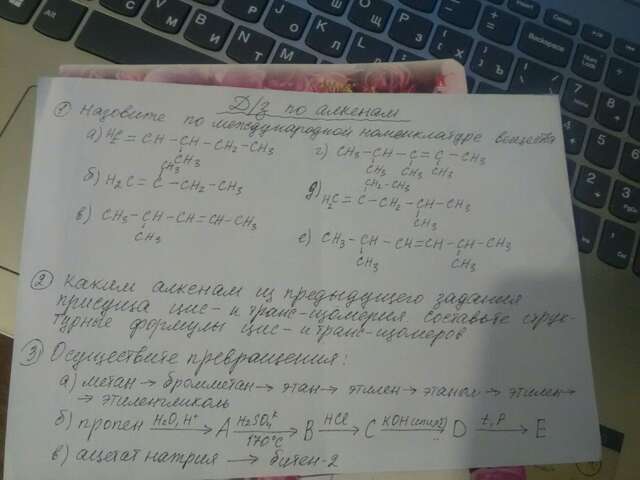 Д/з по алкенам
① Назовите по международной номенклатуре вещества
а) H2C = CH - CH - CH2 - CH3
CH3
б) H2C = C - CH2 - CH3
CH3
в) CH3 - CH - CH = CH - CH3
CH3
г) CH3 - CH - C = C - CH3
CH3 CH3 CH3
д) H2C = C - CH2 - CH - CH3
CH2 - CH3
CH3
е) CH3 - CH - CH = CH - CH - CH3
CH3 CH3
② Каким алкенам из предыдущего задания
присуща цис- и транс-изомерия. Составьте струк-
турные формулы цис- и транс-изомеров
③ Осуществите превращения:
а) метан → бромметан → этан → этилен → этанол → этилен →
→ этиленгликоль
б) пропен H2O, H+ → A H2SO4, 170°C → B HCl → C KOH(спирт) → D t, P → E
в) ацетат натрия → бутен-2
Alt
Backspace
Enter
Insert
Delete